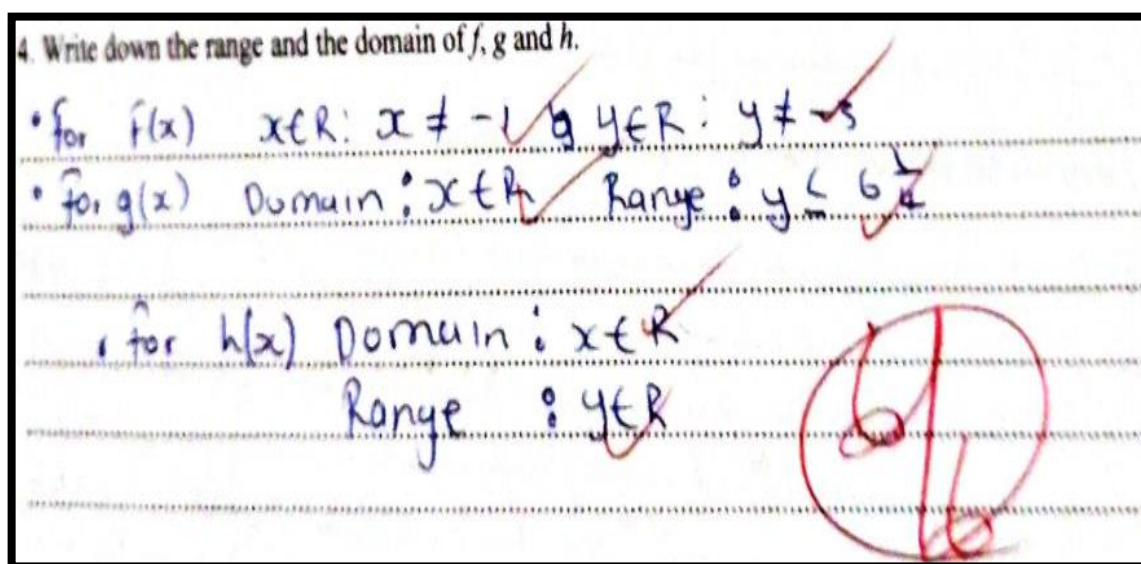 4. Write down the range and the domain of f, g and h.
• for f(x) x∈R: x ≠ -1 y∈R: y ≠ -5
• for g(x) Domain: x∈R Range: y ≤ 6 1/4
• for h(x) Domain: x∈R
Range: y∈R
6/6